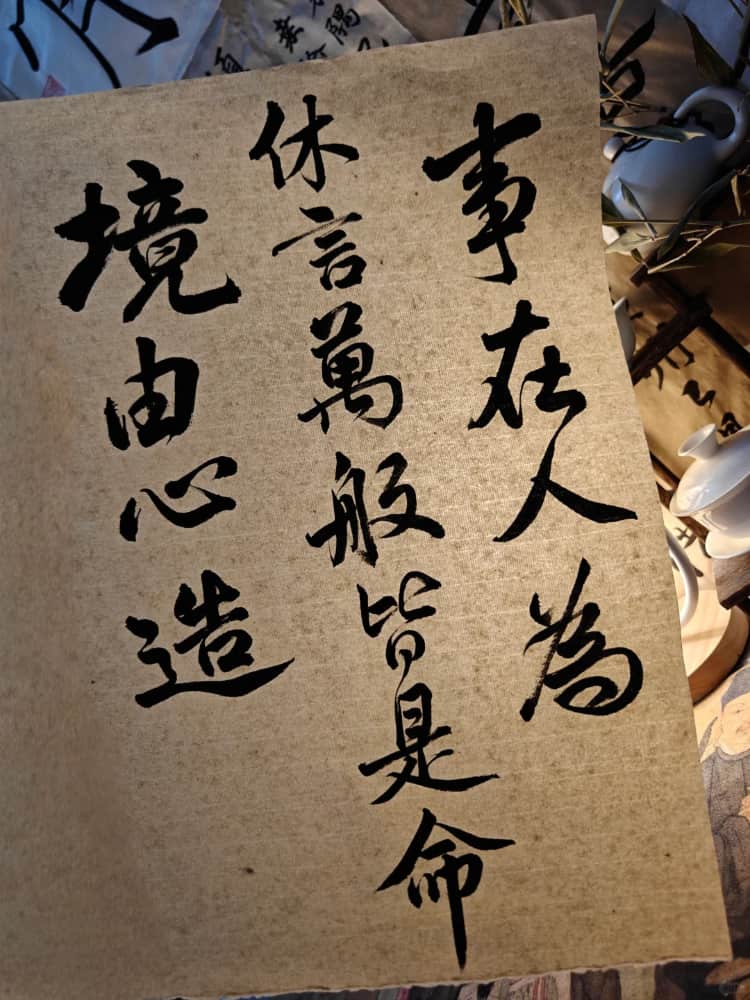 事在人為
休言萬般皆是命
境由心造